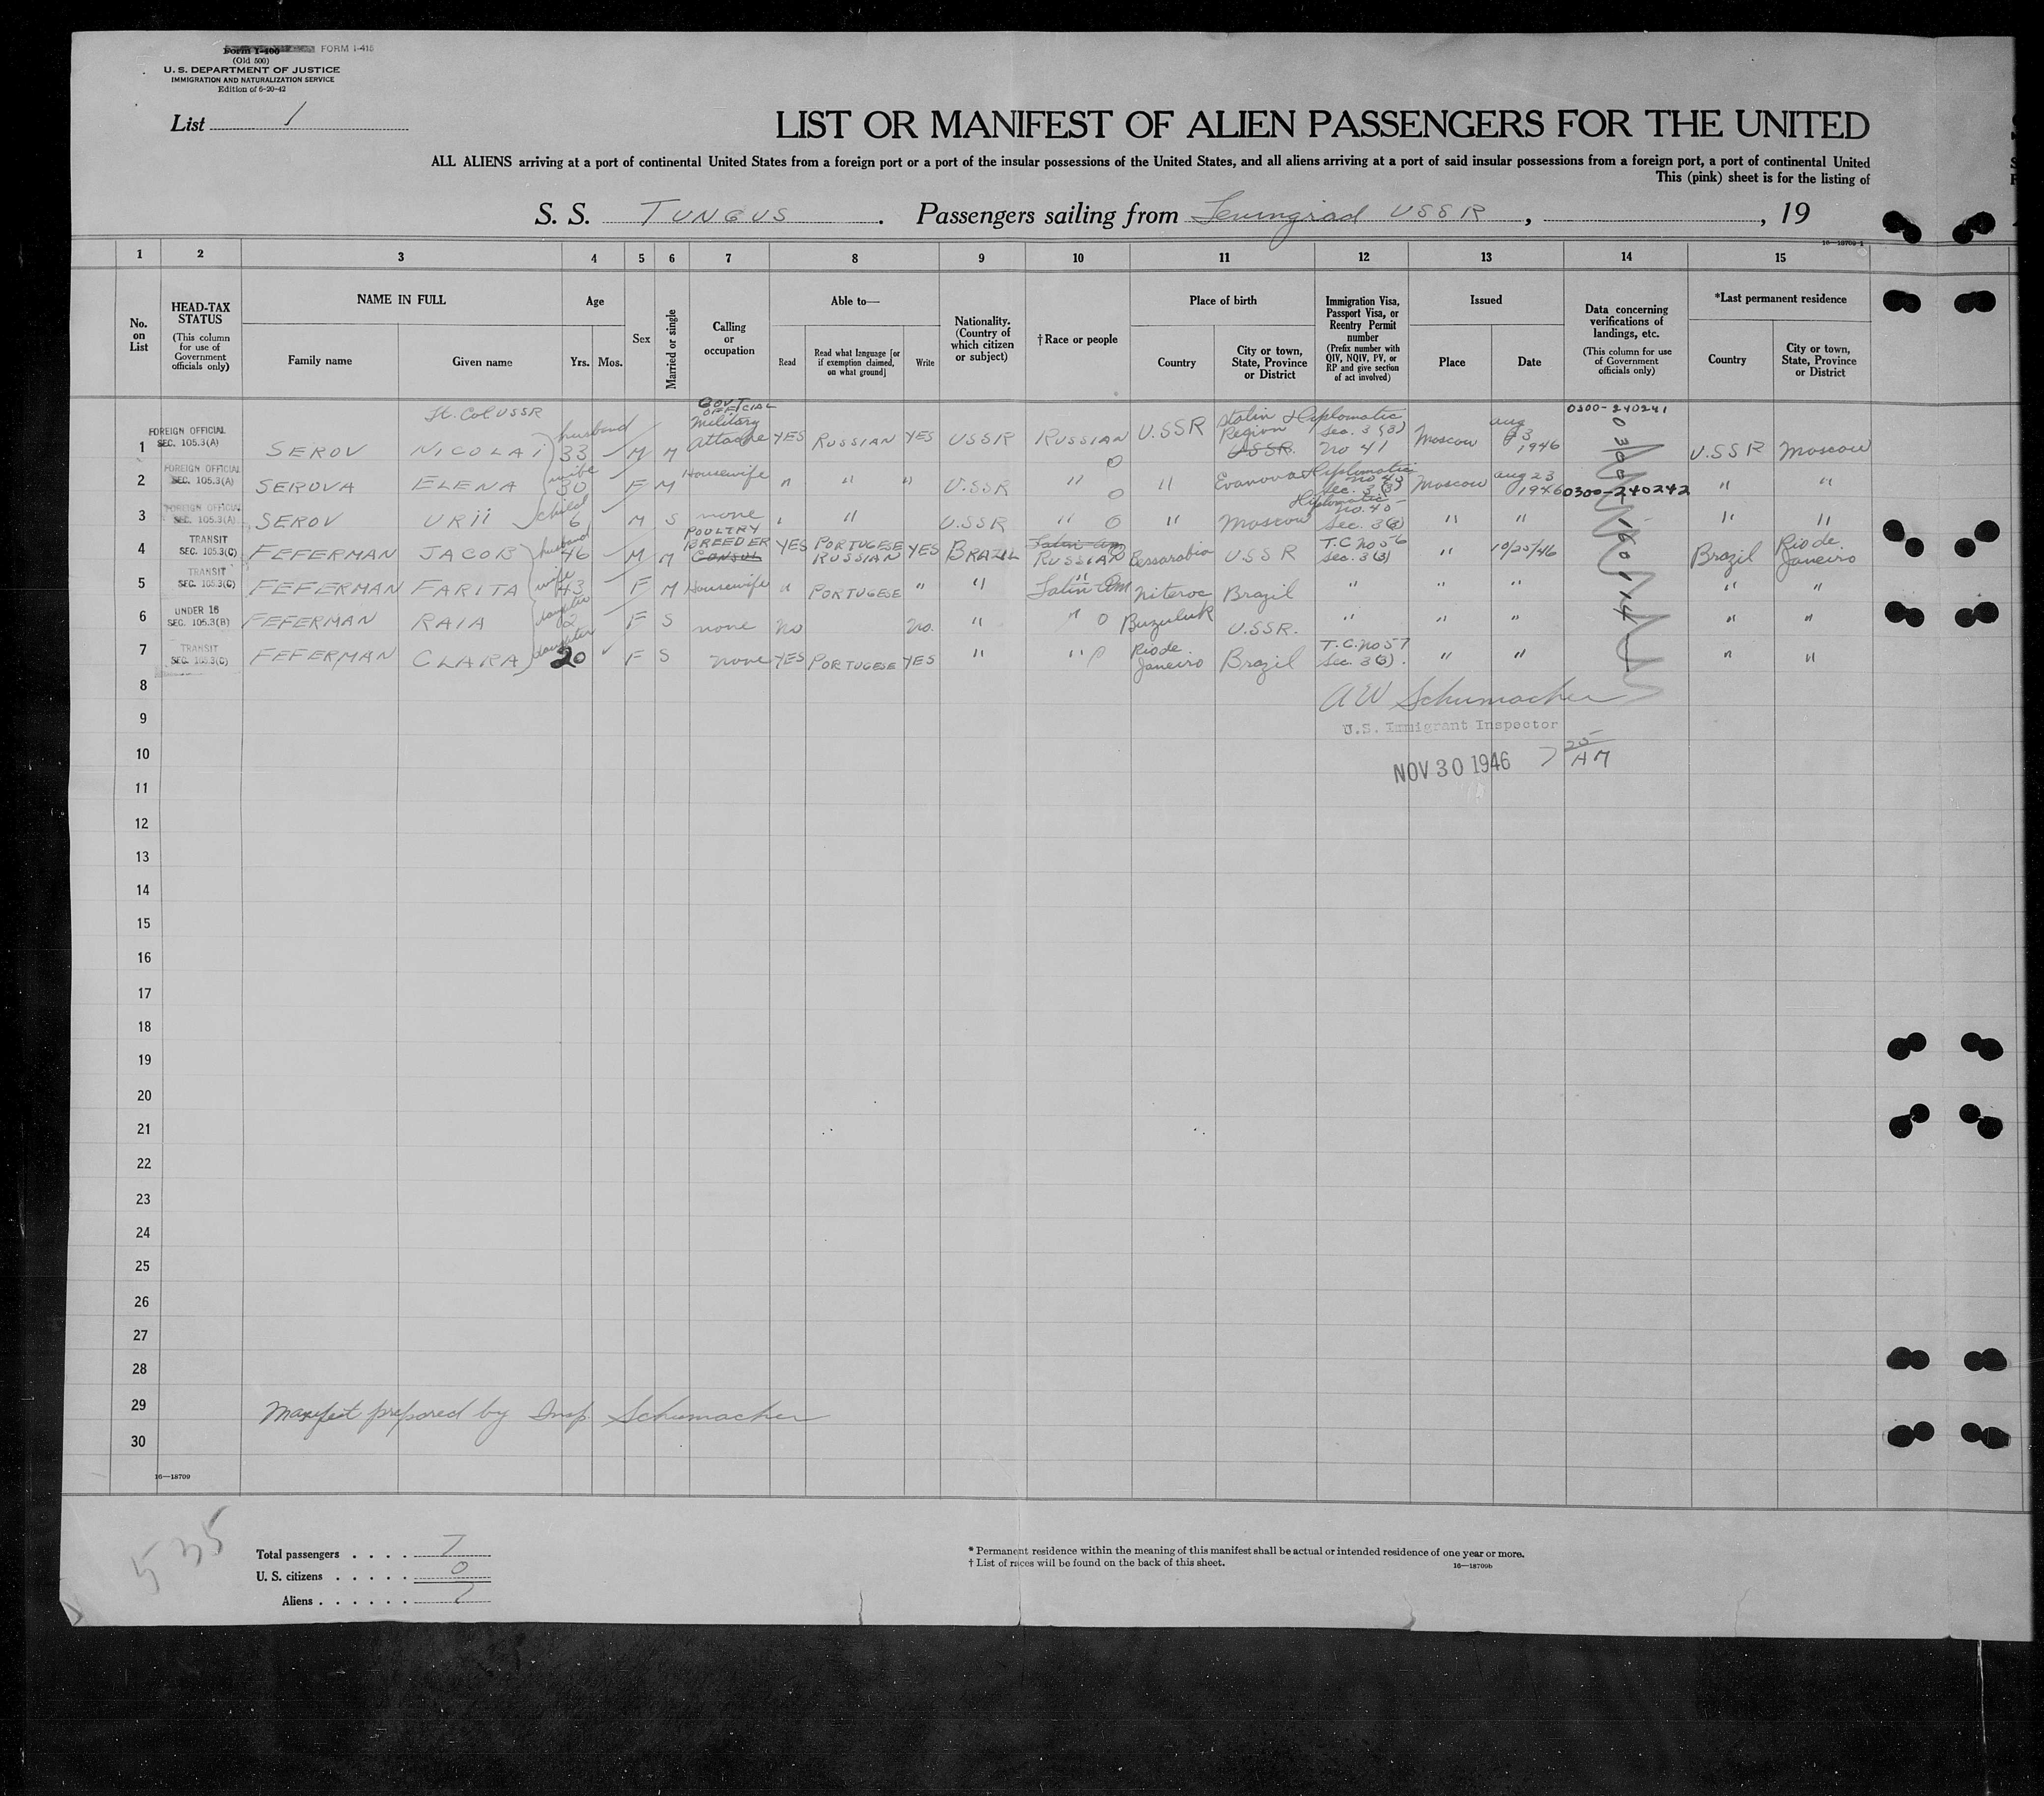 Form I-100 FORM I-415
(Old 500)
U. S. DEPARTMENT OF JUSTICE
IMMIGRATION AND NATURALIZATION SERVICE
Edition of 6-20-42
List 1
LIST OR MANIFEST OF ALIEN PASSENGERS FOR THE UNITED
ALL ALIENS arriving at a port of continental United States from a foreign port or a port of the insular possessions of the United States, and all aliens arriving at a port of said insular possessions from a foreign port, a port of continental United
This (pink) sheet is for the listing of
S. S. TUNGUS . Passengers sailing from Leningrad USSR , , 19
16—18709-1
1 2 3 4 5 6 7 8 9 10 11 12 13 14 15
No. on List
HEAD-TAX STATUS
(This column for use of Government officials only)
NAME IN FULL
Family name
Given name
Age
Yrs. Mos.
Sex
Married or single
Calling or occupation
Able to—
Read
Read what language [or if exemption claimed, on what ground]
Write
Nationality. (Country of which citizen or subject)
†Race or people
Place of birth
Country
City or town, State, Province or District
Immigration Visa, Passport Visa, or Reentry Permit number
(Prefix number with QIV, NQIV, PV, or RP and give section of act involved)
Issued
Place
Date
Data concerning verifications of landings, etc.
(This column for use of Government officials only)
*Last permanent residence
Country
City or town, State, Province or District
1 FOREIGN OFFICIAL SEC. 105.3(A) SEROV Lt. Col USSR NICOLAI husband 33 M M GOVT OFFICIAL Military Attache YES RUSSIAN YES USSR RUSSIAN U.S.S.R Stalin Region U.S.S.R. Diplomatic Sec. 3(3) No 41 Moscow Aug 23 1946 0300-240241 U.S.S.R Moscow
2 FOREIGN OFFICIAL SEC. 105.3(A) SEROVA ELENA wife 30 F M Housewife " " " U.S.S.R " " Diplomatic no 43 Sec. 3(3) Moscow Aug 23 1946 0300-240242 " "
3 FOREIGN OFFICIAL SEC. 105.3(A) SEROV URII child 6 M S none " " U.S.S.R " " Moscow Diplomatic no. 40 Sec. 3(3) " " " "
4 TRANSIT SEC. 105.3(C) FEFERMAN JACOB husband 46 M M POULTRY BREEDER Consul YES PORTUGESE RUSSIAN YES BRAZIL Latin Am RUSSIAN Bessarabia U.S.S.R T.C. No 56 Sec. 3(3) " 10/25/46 Brazil Rio de Janeiro
5 TRANSIT SEC. 105.3(C) FEFERMAN FARITA wife 43 F M Housewife " PORTUGESE " " Latin Am Niteroc Brazil " " " " "
6 UNDER 16 SEC. 105.3(B) FEFERMAN RAIA daughter 2 F S none No No. " " Buzuluk U.S.S.R. " " " " "
7 TRANSIT SEC. 105.3(C) FEFERMAN CLARA daughter 20 F S none YES PORTUGESE YES " " Rio de Janeiro Brazil T.C. No 57 Sec. 3(3). " " " "
8 AW Schumacher
9 U.S. Immigrant Inspector
10 NOV 30 1946 7 25 AM
11
12
13
14
15
16
17
18
19
20
21
22
23
24
25
26
27
28
29 Manifest prepared by Insp. Schumacher
30
16—18709
535
Total passengers . . . . 7
U. S. citizens . . . . . 0
Aliens . . . . . . 7
* Permanent residence within the meaning of this manifest shall be actual or intended residence of one year or more.
† List of races will be found on the back of this sheet.
16—18709b